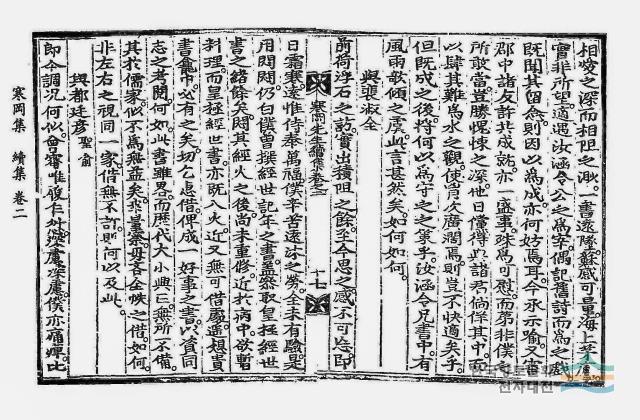 相愛之深而相阻之一書遠墜慰感可量海上茅庵
實非所望適遇汝涵令公之爲宰偶記舊詩而爲之戲
旣聞其留念則因以爲成亦何妨焉耳今承示喩又當
郡中諸友許共成就亦一盛事殊爲可慰而第非僕之
所敢當豈勝愧悚之深他日僅得與諸君徜徉其中
以肆其難爲水之觀使胸次廣濶焉則豈不快適矣乎
但旣成之後將何以爲守之之策乎汝涵令兄書中有
風雨欹傾之虞此言甚然矣如何如何
與張淑全
前荷浮石之訪實出積阻之餘至今思之感不可忘卽
寒岡先生續集卷之二 十七
日霜寒遠惟侍奉萬福僕辛苦遠沐之勞全未有驗是
用悶悶仍白僕曾撰經世記年之書盖嘗取皇極經世
書之緖餘矣閔其經火之後尙未重修近於病中欲暫
料理而皇極經世書亦旣入火近又無可借處遙想貴
書龕中必有之矣切乞惠借俾成一好事之書以資同
志之考閱何如此書雖易而歷代大小典無所不備
其於儒家似不爲無益矣幸量毋吝全帙之借如何
非左右之視同一家借無不許則何以及此
與都廷彦聖兪
卽今調況何似會寧唯復乍深慮深慮僕亦痛婢比
寒岡集 續集 卷二
전자대전